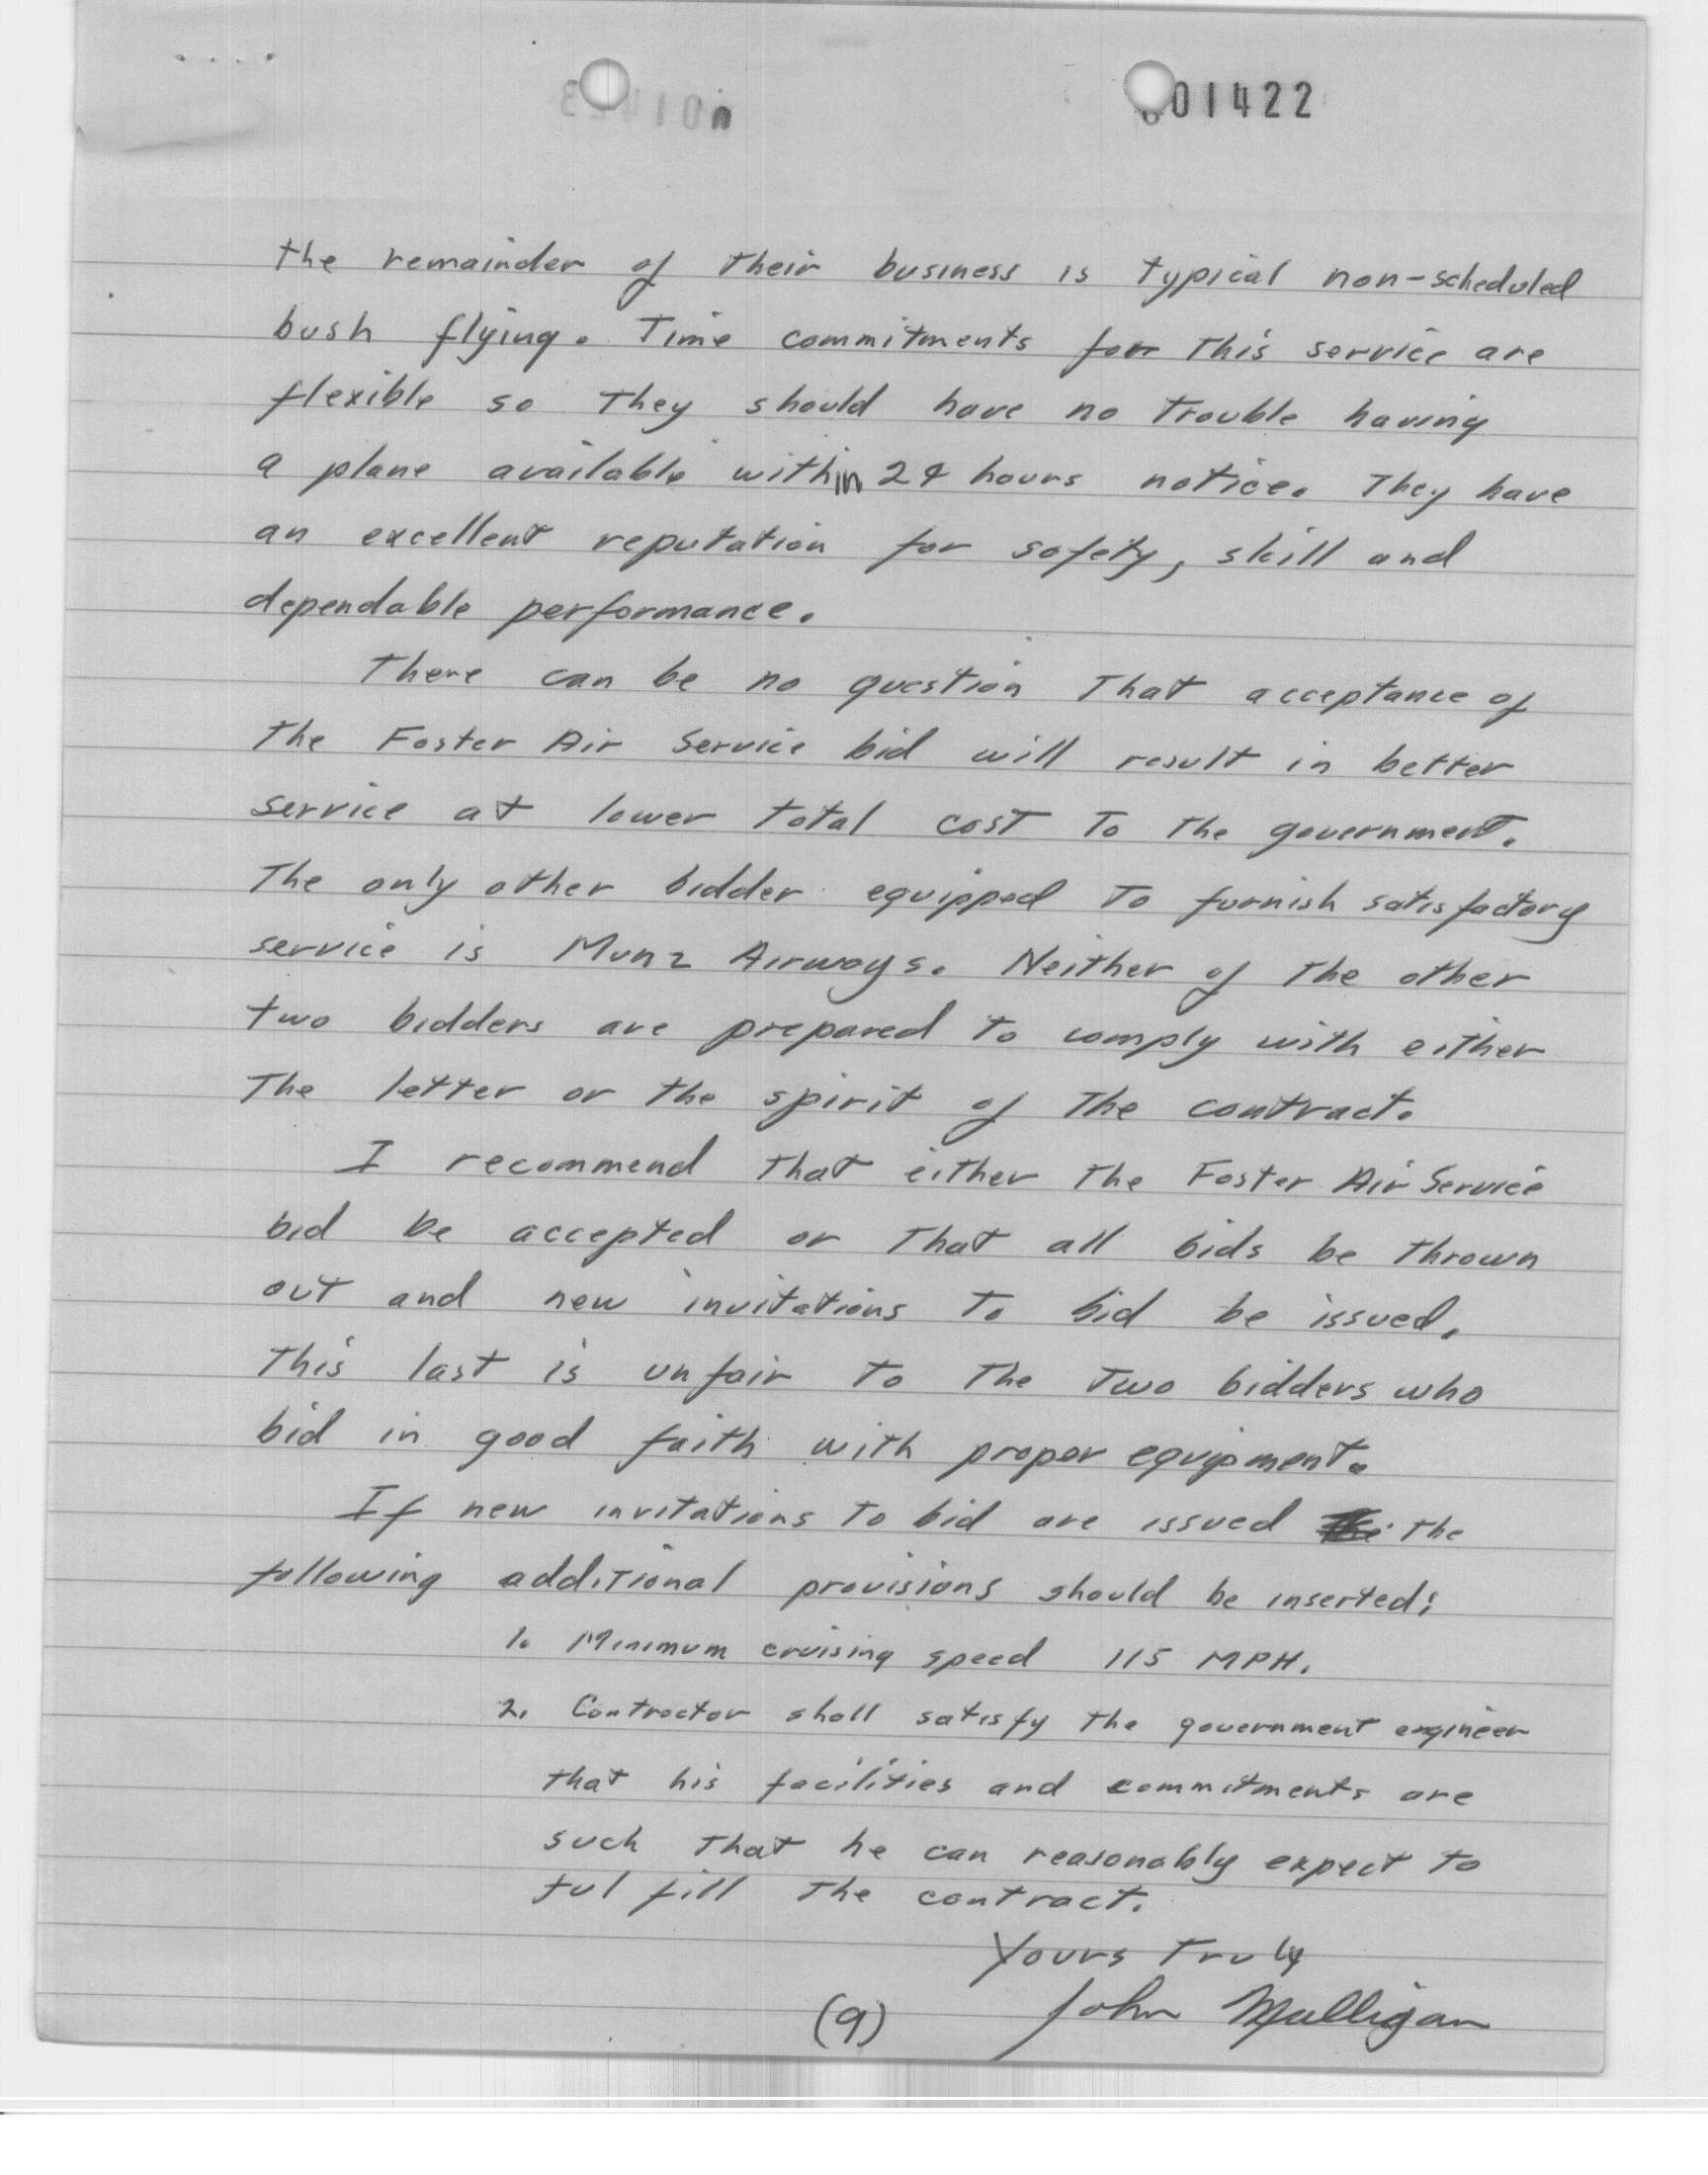 01422
the remainder of their business is typical non-scheduled
bush flying. Time commitments for this service are
flexible so they should have no trouble having
a plane available within 24 hours notice. They have
an excellent reputation for safety, skill and
dependable performance.
There can be no question that acceptance of
the Foster Air Service bid will result in better
service at lower total cost to the government.
The only other bidder equipped to furnish satisfactory
service is Munz Airways. Neither of the other
two bidders are prepared to comply with either
the letter or the spirit of the contract.
I recommend that either the Foster Air Service
bid be accepted or that all bids be thrown
out and new invitations to bid be issued.
This last is unfair to the two bidders who
bid in good faith with proper equipment.
If new invitations to bid are issued the
following additional provisions should be inserted;
1. Minimum cruising speed 115 MPH.
2. Contractor shall satisfy the government engineer
that his facilities and commitments are
such that he can reasonably expect to
fulfill the contract.
Yours truly
John Mulligan
(9)